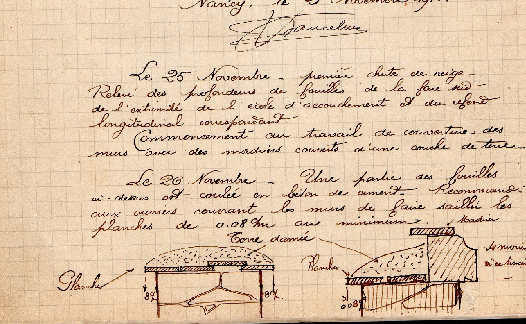 Nancy, le
Le 25 Novembre - première chute de neige -
Relevé des profondeurs de fouilles de la face sud -
de l'extrémité de l'école d'accouchement et du refend
longitudinal correspondant
Commencement du travail de couverture des
murs avec des madriers couverts d'une couche de terre
Le 26 Novembre - Une partie des fouilles
ci-dessus est coulée en béton de ciment - Recommandé
aux ouvriers couvrant les murs de faire saillir les
planches de 0.08 au minimum.
Madrier
Terre damée
Planches
Planches
8
8
0.08